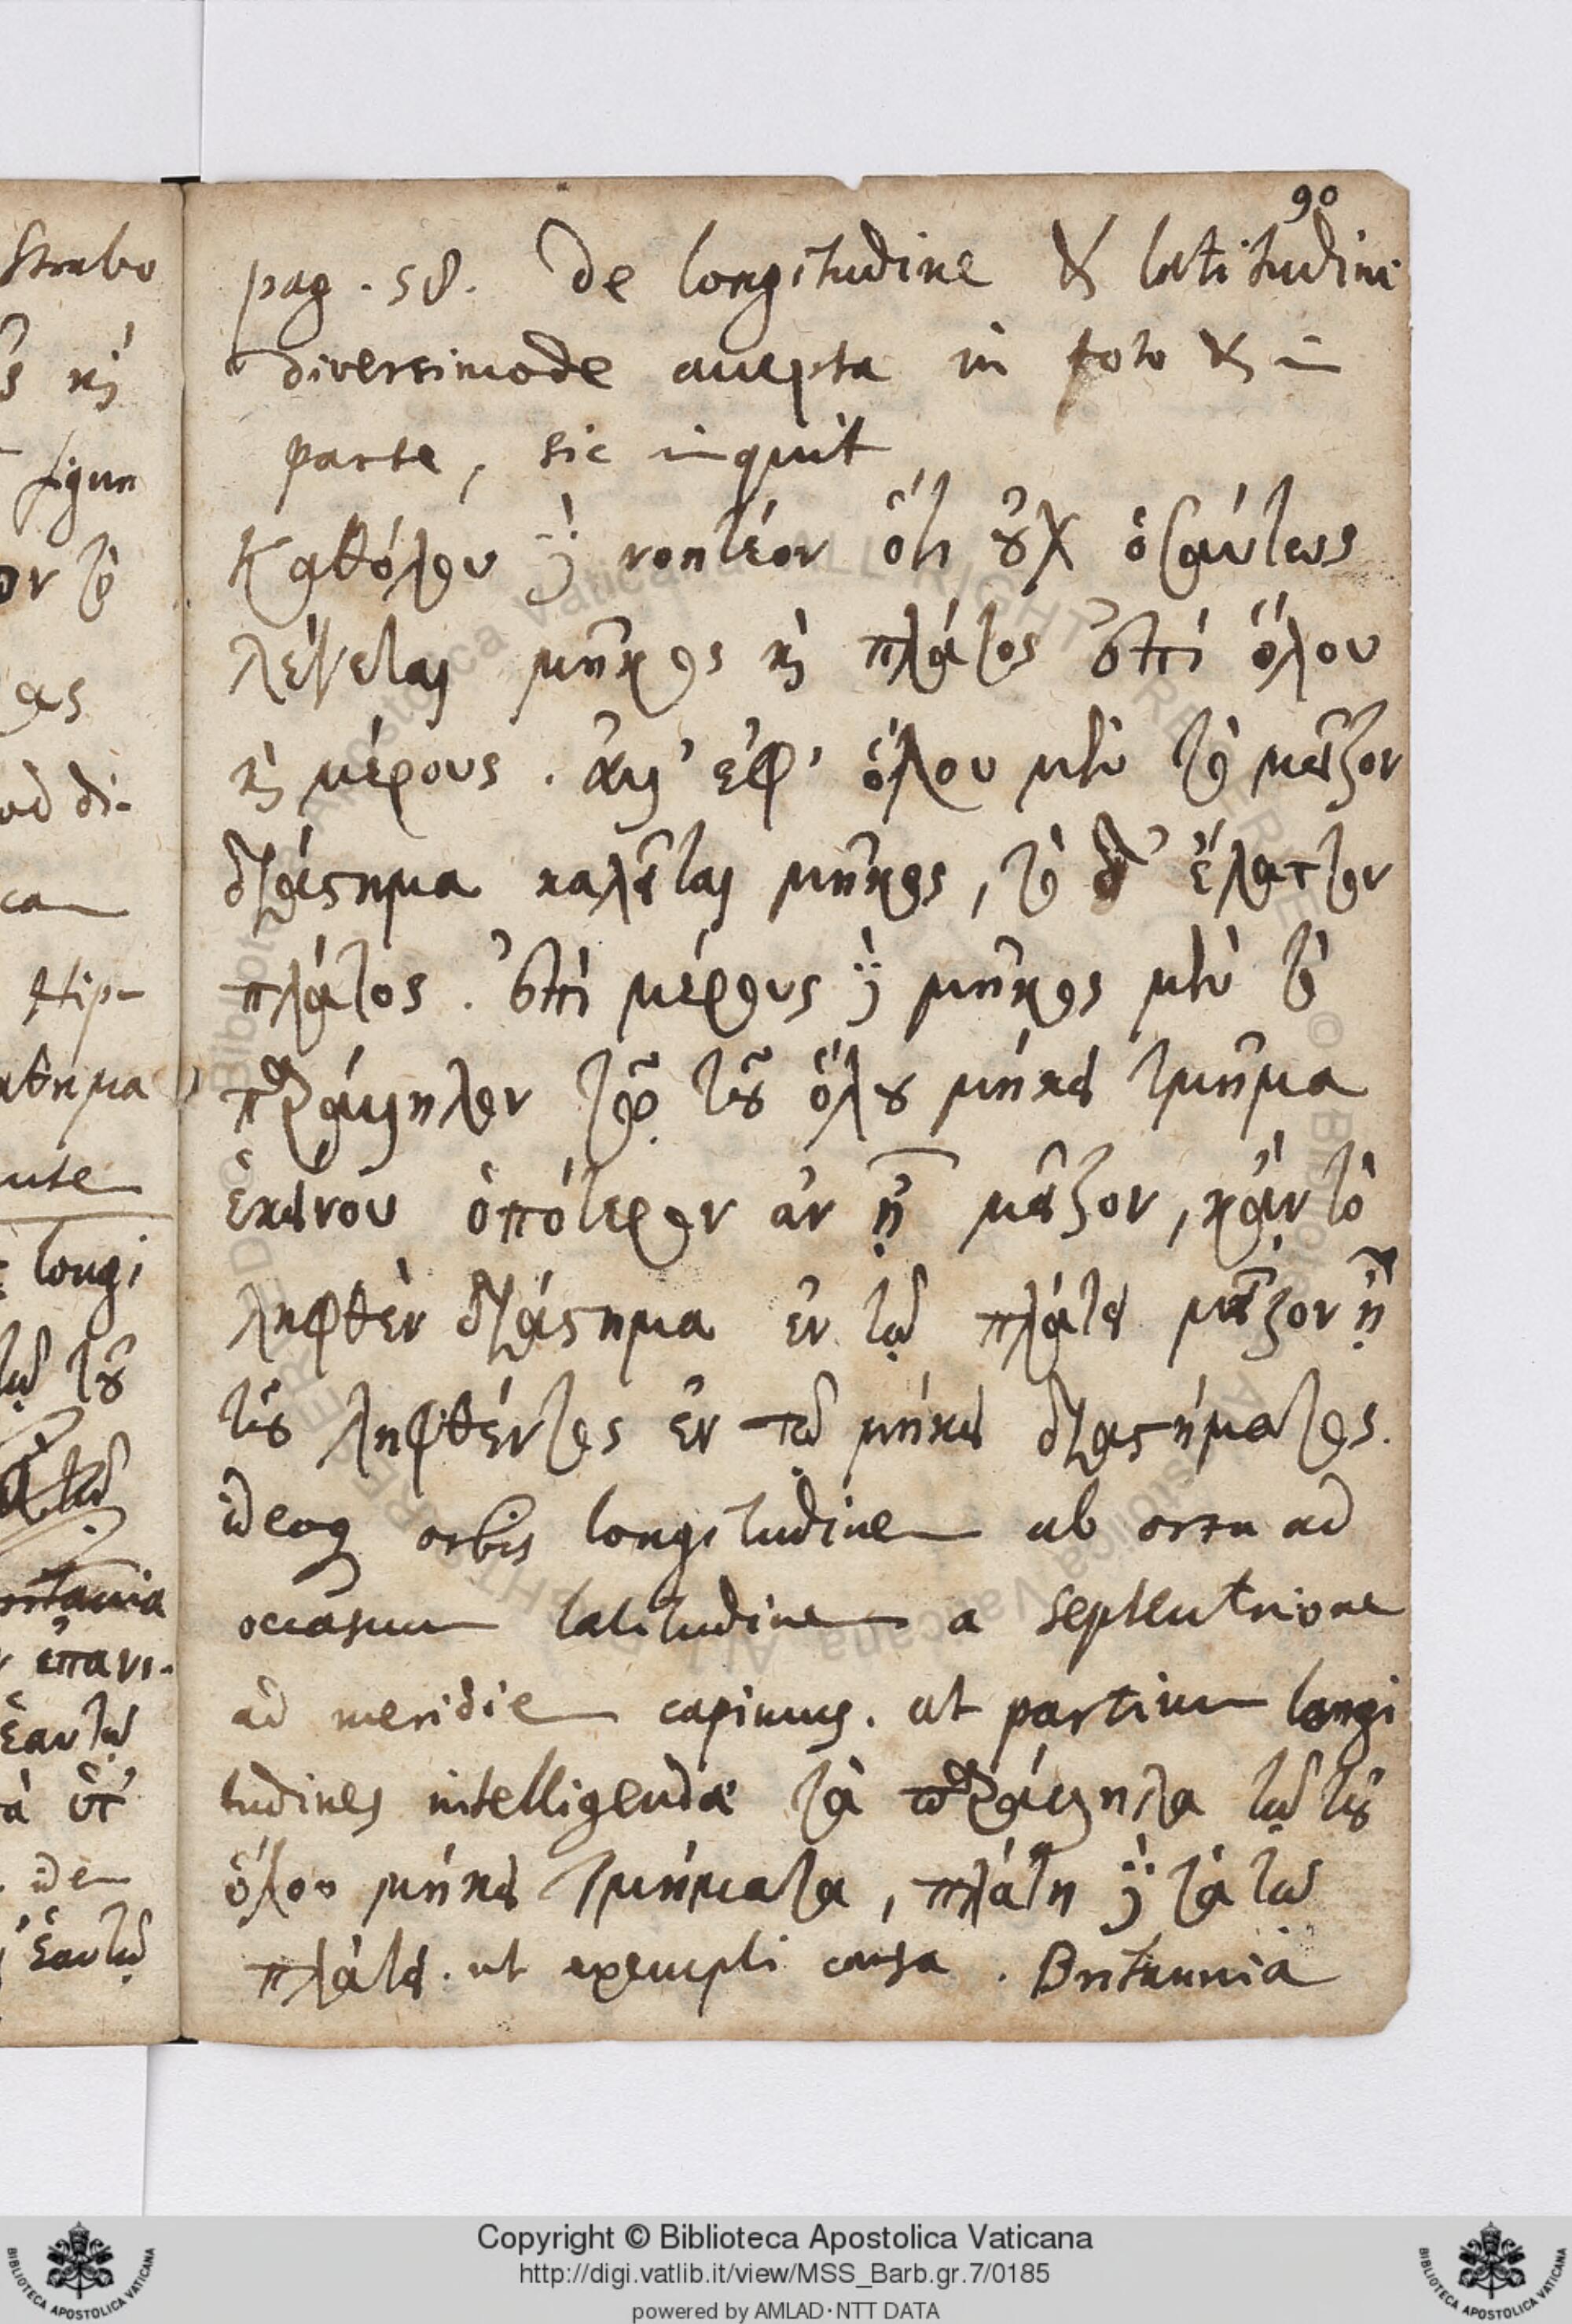 90
pag. 58. De longitudine & latitudine
diversimode accepta in toto & in
parte, sic inquit
Καθόλου δὲ νοητέον ὅτι οὐχ ὡσαύτως
λέγεται μῆκος καὶ πλάτος ἐπὶ ὅλου
καὶ μέρους. ἀλλ' ἐφ' ὅλου μὲν τὸ μεῖζον
διάστημα καλεῖται μῆκος, τὸ δ' ἔλαττον
πλάτος. ἐπὶ μέρους δὲ μῆκος μὲν τὸ
παράλληλον τῷ τοῦ ὅλου μήκει τμῆμα
ἐκείνου ὁπότερον ἂν ᾖ μεῖζον, κἂν τὸ
ληφθὲν διάστημα ἐν τῷ πλάτει μεῖζον ᾖ
τοῦ ληφθέντος ἐν τῷ μήκει διαστήματος.
ideoq orbis longitudinem ab ortu ad
occasum latitudinem a septentrione
ad meridiem capimus. at partium longi
tudines intelligendae τὰ παράλληλα τῷ τοῦ
ὅλου μήκει τμήματα, πλάτη δὲ τὰ τῷ
πλάτει. ut exempli causa. Britannia
Strabo
καὶ
longi
τῷ τοῦ
ἑαυτῷ
ἑαυτῷ
Copyright © Biblioteca Apostolica Vaticana
http://digi.vatlib.it/view/MSS_Barb.gr.7/0185
powered by AMLAD·NTT DATA
BIBLIOTECA APOSTOLICA VATICANA
BIBLIOTECA APOSTOLICA VATICANA